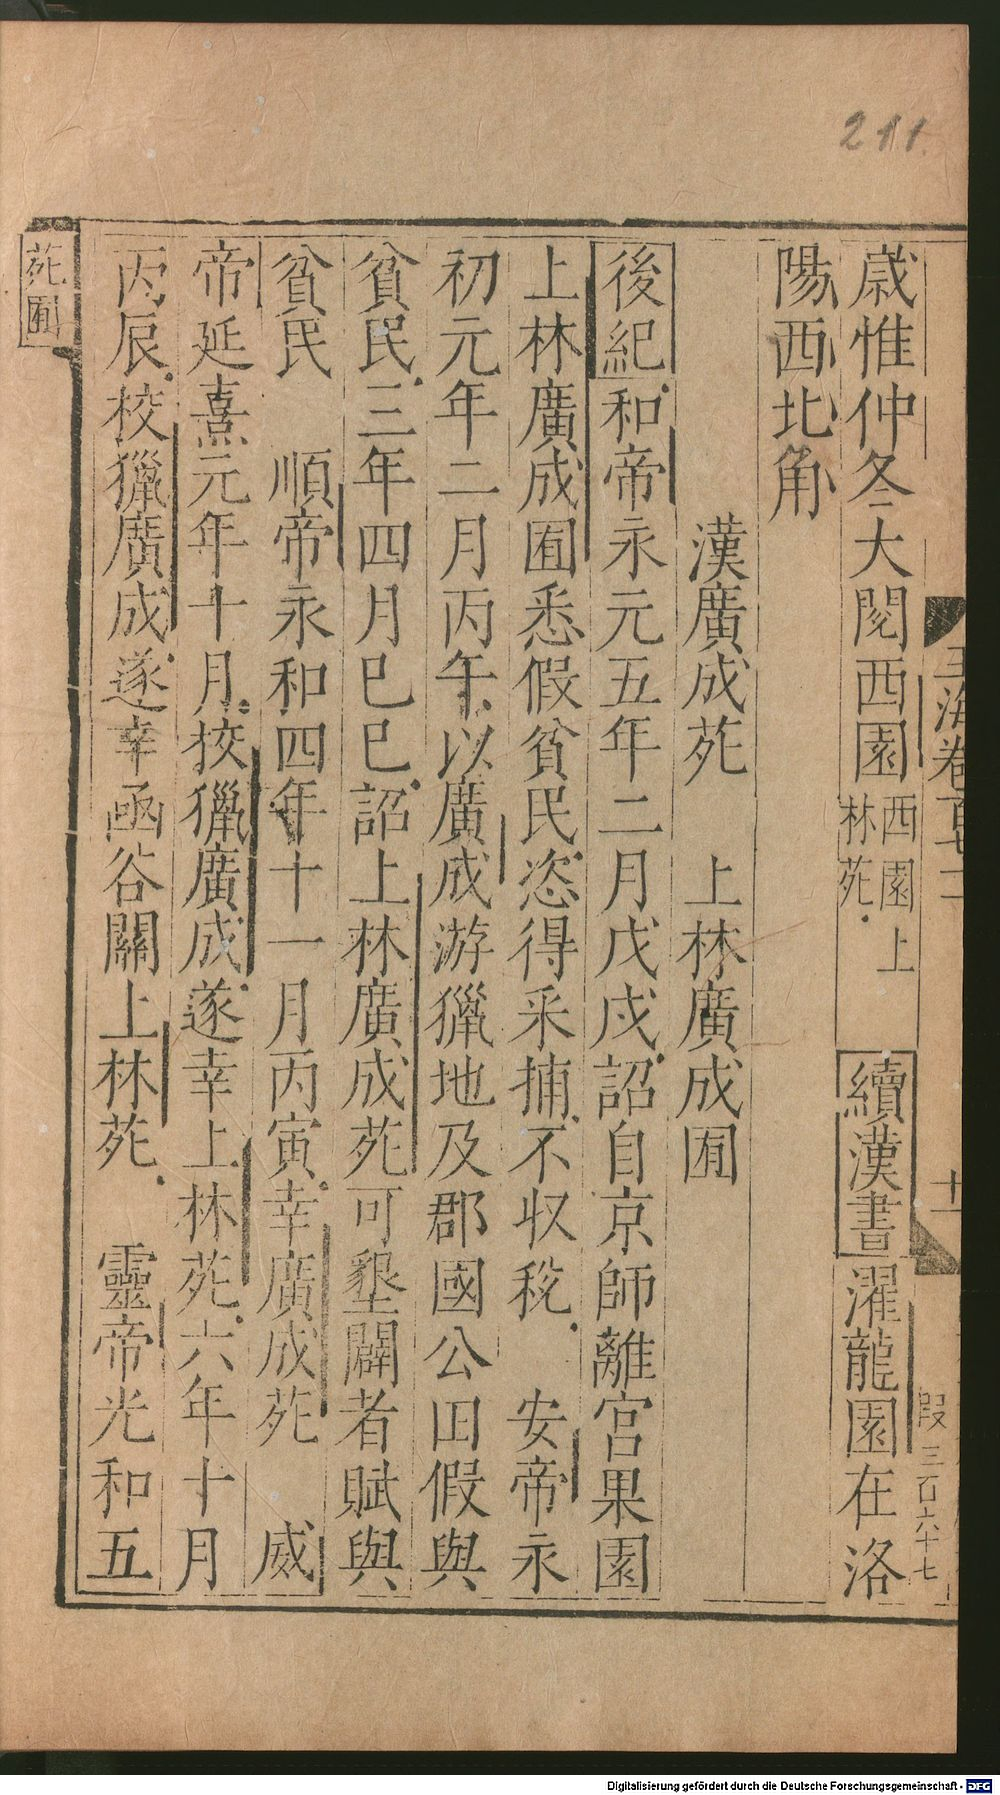 211
玉海卷百七十一
十一
段三百六十七
歳惟仲冬大閱西園西園上林苑 續漢書濯龍園在洛
陽西北角
漢廣成苑 上林廣成囿
後紀和帝永元五年二月戊戌詔自京師離宮果園
上林廣成囿悉假貧民恣得采捕不収稅 安帝永
初元年二月丙午以廣成游獵地及郡國公田假與
貧民三年四月巳巳詔上林廣成苑可墾闢者賦與
貧民 順帝永和四年十一月丙寅幸廣成苑 威
帝延熹元年十月校獵廣成遂幸上林苑六年十月
丙辰校獵廣成遂幸函谷關上林苑 靈帝光和五
苑囿
Digitalisierung gefördert durch die Deutsche Forschungsgemeinschaft - DFG